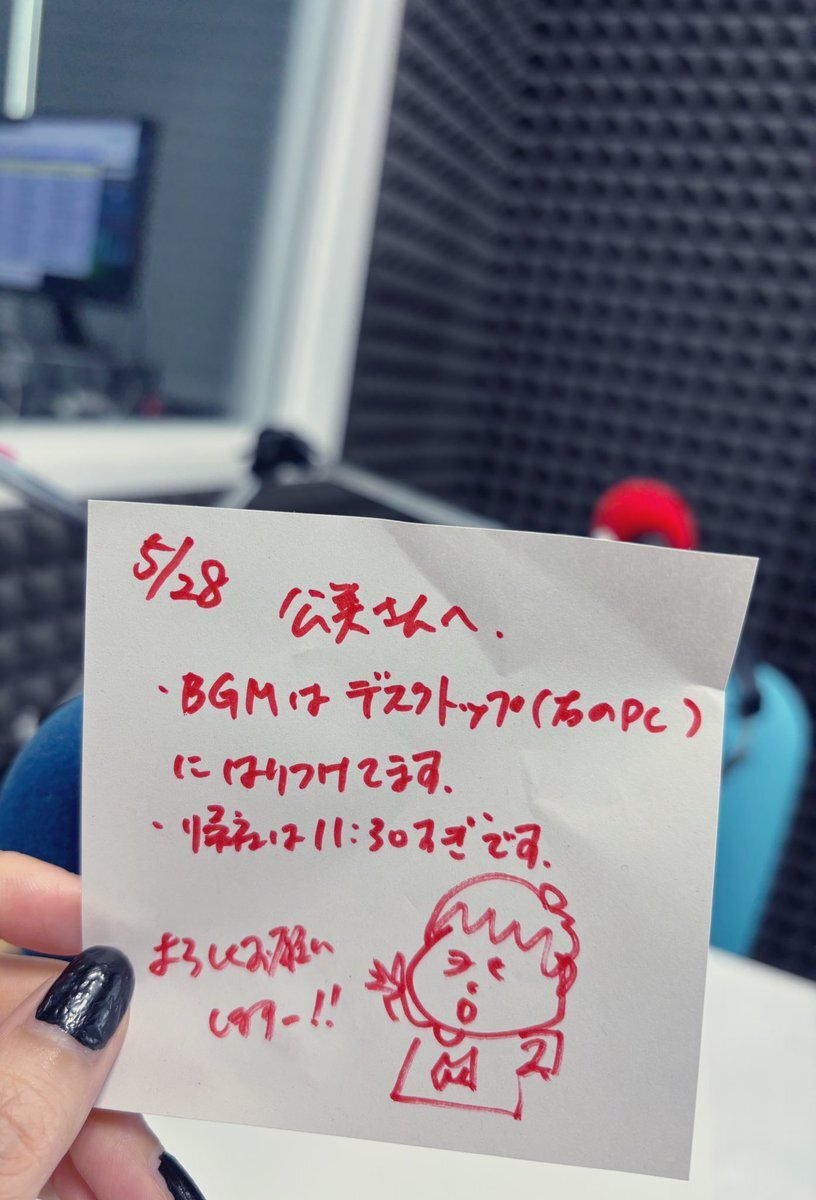 5/28 公美さんへ.
・BGMは デスクトップ(右のPC)
にはりつけてます.
・帰社は11:30すぎです.
よろしくお願い
しますー!!